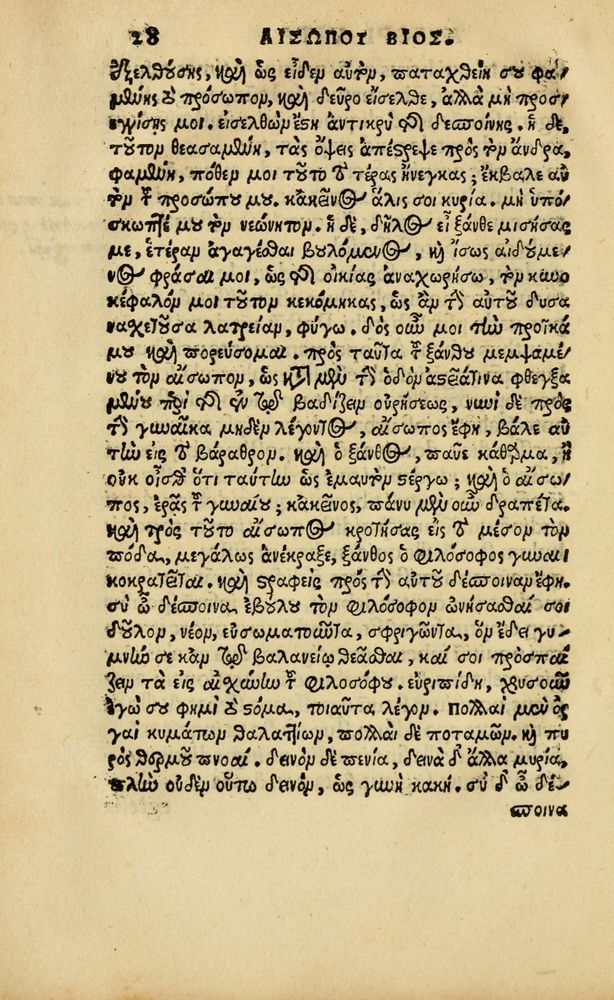 28 ΑΙΣΩΠΟΥ ΒΙΟΣ.
ἐξελθούσης, καὶ ὡς εἶδεν αὐτὸν, παταχθείη σου φα-
μένης τὸ πρόσωπον, καὶ δεῦρο εἴσελθε, ἀλλὰ μὴ προσ
εγγίσης μοι. εἰσελθὼν ἔστη ἀντικρὺ τῆς δεσποίνης. ἡ δὲ,
τοῦτον θεασαμένη, τὰς ὄψεις ἀπέστρεψε πρὸς τὸν ἄνδρα,
φαμένη, πόθεν μοι τοῦτο τὸ τέρας ἤνεγκας; ἔκβαλε αὐ
τὸν τοῦ προσώπου μου. κἀκεῖνος ἅλις σοι κυρία. μὴ ὑπό-
σκωπτέ μου τὸν νεώνητον. ἡ δὲ, δῆλος εἶ ξάνθε μισήσας
με, ἑτέραν ἀγαγέσθαι βουλόμενος, καὶ ἴσως αἰδούμε-
νος φράσαι μοι, ὡς τῆς οἰκίας ἀναχωρήσω, τὸν κυνο
κέφαλόν μοι τοῦτον κεκόμηκας, ὡς ἂν τὴν αὐτοῦ δυσα
νασχετοῦσα λατρείαν, φύγω. δὸς οὖν μοι τὴν προῖκά
μου καὶ πορεύσομαι. πρὸς ταῦτα τοῦ ξάνθου μεμψαμέ-
νου τὸν αἴσωπον, ὡς κατὰ μὲν τὴν ὁδὸν ἀστεῖα τινα φθεγξα
μένου περὶ τῆς ἐν τῷ βαδίζειν οὐρήσεως, νυνὶ δὲ πρὸς
τὴν γυναῖκα μηδὲν λέγοντος, αἴσωπος ἔφη, βάλε αὐ
τὴν εἰς τὸ βάραθρον. καὶ ὁ ξάνθος, παῦε κάθαρμα, ἢ
οὐκ οἶσθ' ὅτι ταύτην ὡς ἐμαυτὸν στέργω; καὶ ὁ αἴσω-
πος, ἐρᾷς τοῦ γυναίου; κἀκεῖνος, πάνυ μὲν οὖν δραπέτα.
καὶ πρὸς τοῦτο αἴσωπος κροτήσας εἰς τὸ μέσον τὸν
πόδα, μεγάλως ἀνέκραξε, ξάνθος ὁ φιλόσοφος γυναι-
κοκρατεῖται. καὶ στραφεὶς πρὸς τὴν αὐτοῦ δέσποιναν ἔφη.
σὺ ὦ δέσποινα ἐβούλου τὸν φιλόσοφον ὠνήσασθαί σοι
δοῦλον, νέον, εὐσωματοῦντα, σφριγῶντα, ὃν ἔδει γυ-
μνήν σε κἂν τῷ βαλανείῳ θεᾶσθαι, καί σοι προσπαί
ζειν τὰ εἰς αἰσχύνην τοῦ φιλοσόφου. εὐριπίδη, χρυσοῦν
ἐγώ σου φημὶ τὸ στόμα, τοιαῦτα λέγον. Πολλαὶ μὲν ὀρ
γαὶ κυμάτων θαλαττίων, πολλαὶ δὲ ποταμῶν. καὶ πυ
ρὸς θερμοῦ πνοαί. δεινὸν δὲ πενία, δεινὰ δ' ἄλλα μυρία,
πλὴν οὐδὲν οὕτω δεινὸν, ὡς γυνὴ κακή. σὺ δ' ὦ δέ-
σποινα